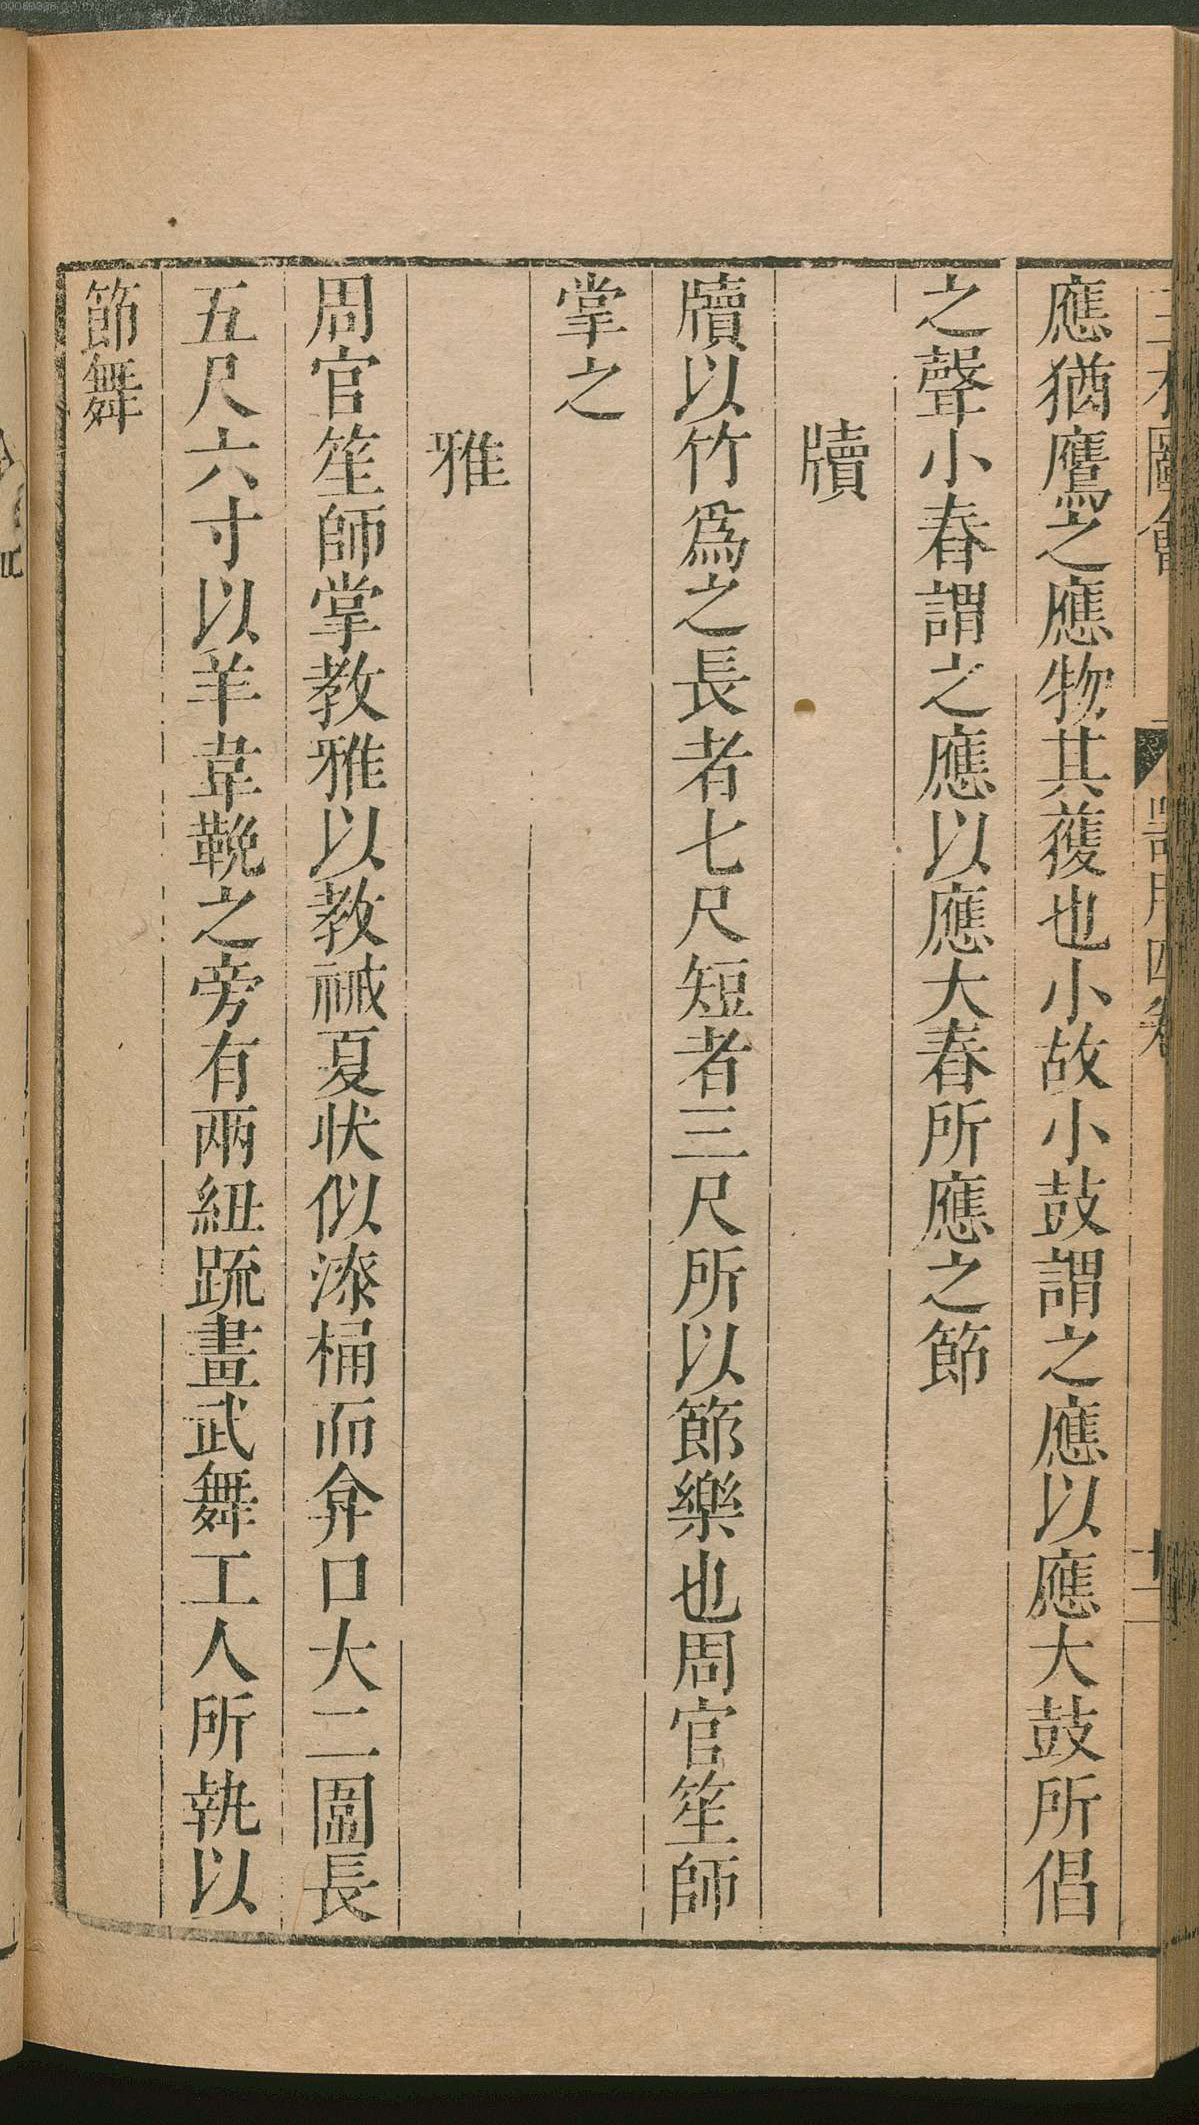 應猶鷹之應物其獲也小故小鼓謂之應以應大鼓所倡
之聲小舂謂之應以應大舂所應之節
牘
牘以竹爲之長者七尺短者三尺所以節樂也周官笙師
掌之
雅
周官笙師掌教雅以教祴夏状似漆桶而弇口大二圍長
五尺六寸以羊韋鞔之旁有兩紐䟽畫武舞工人所執以
節舞